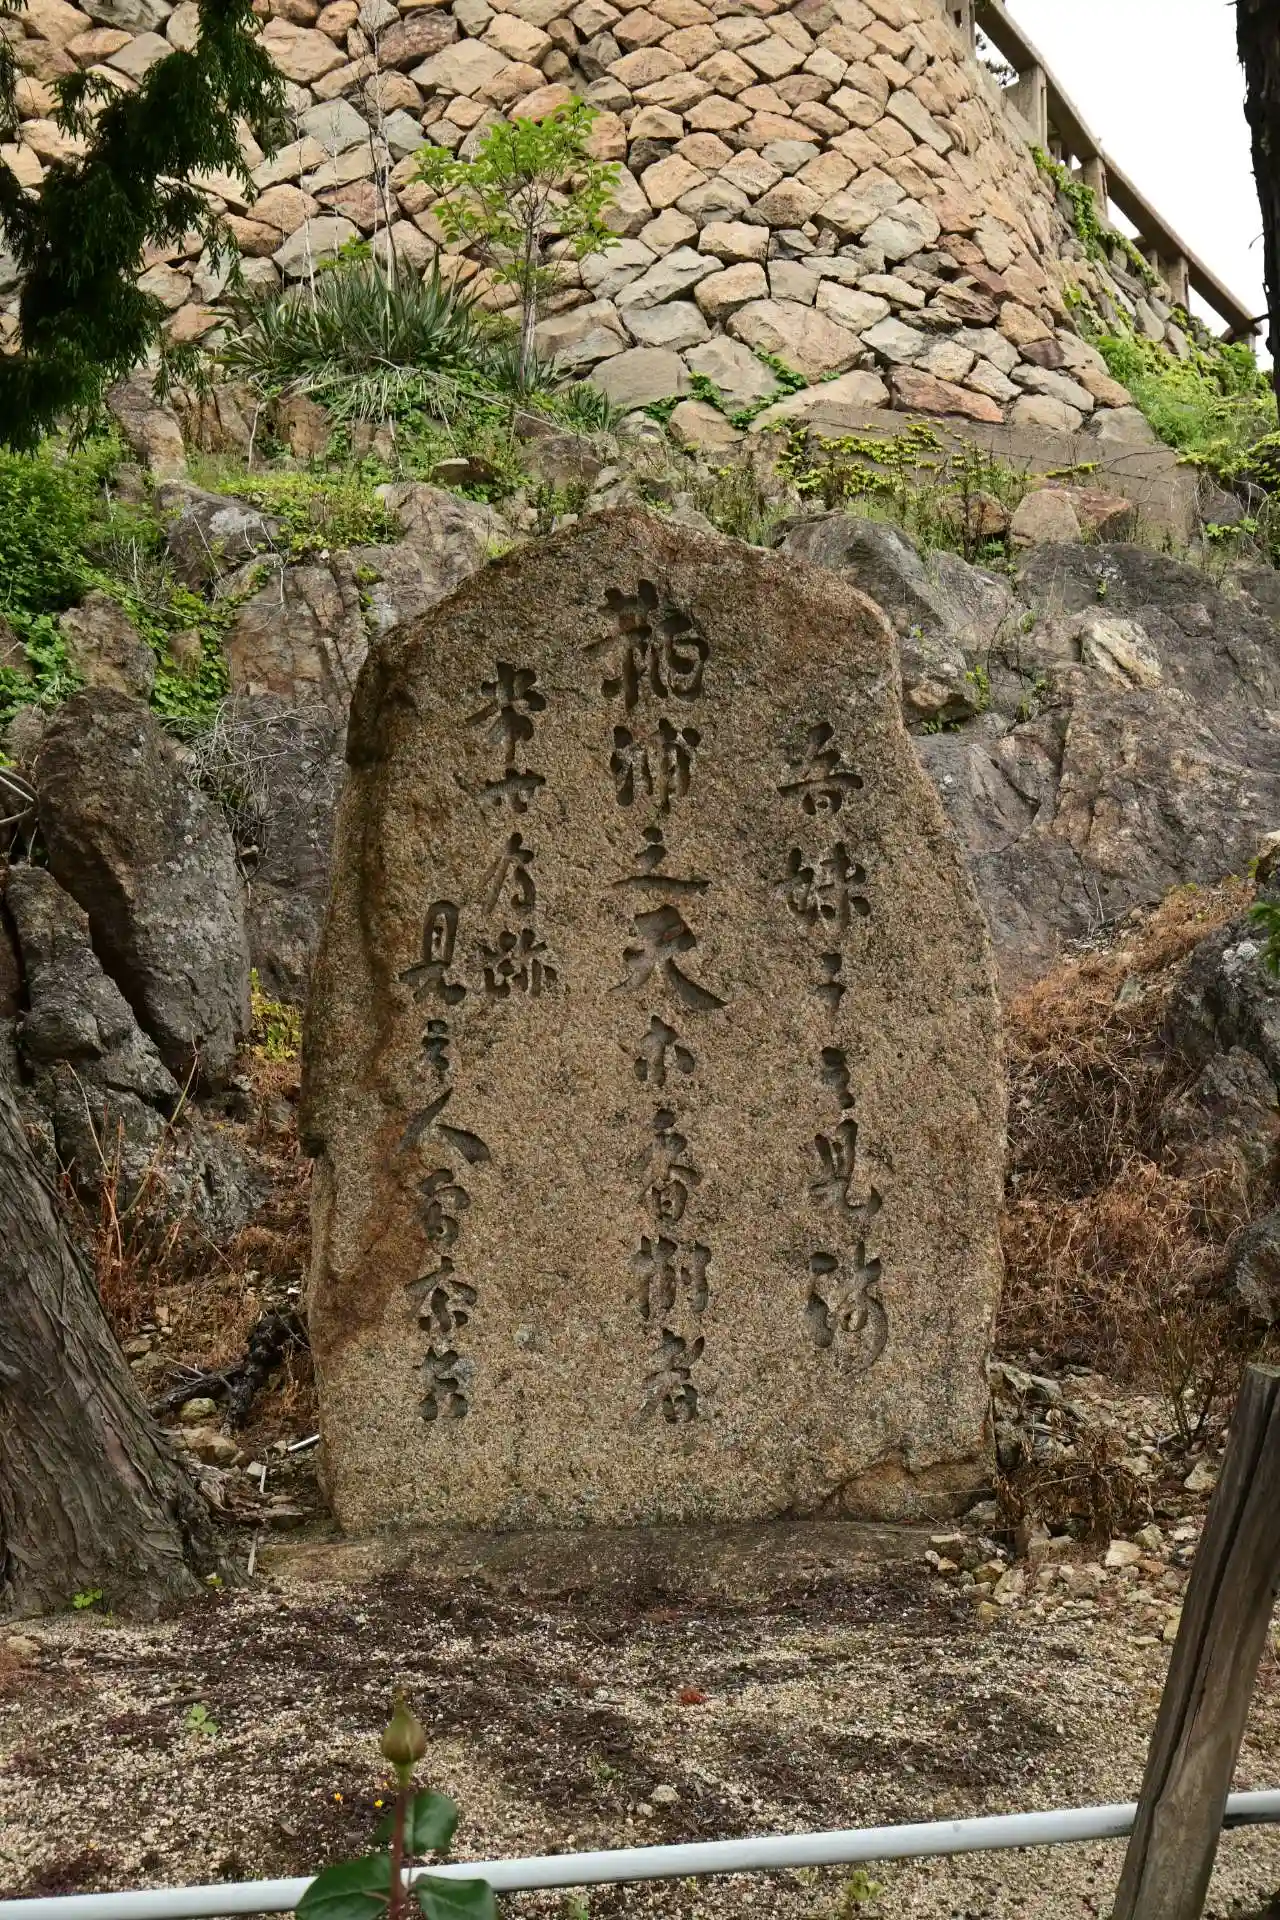 吾妹子之見師
鞆浦之天木香樹者
常世有跡
見之人曽奈吉